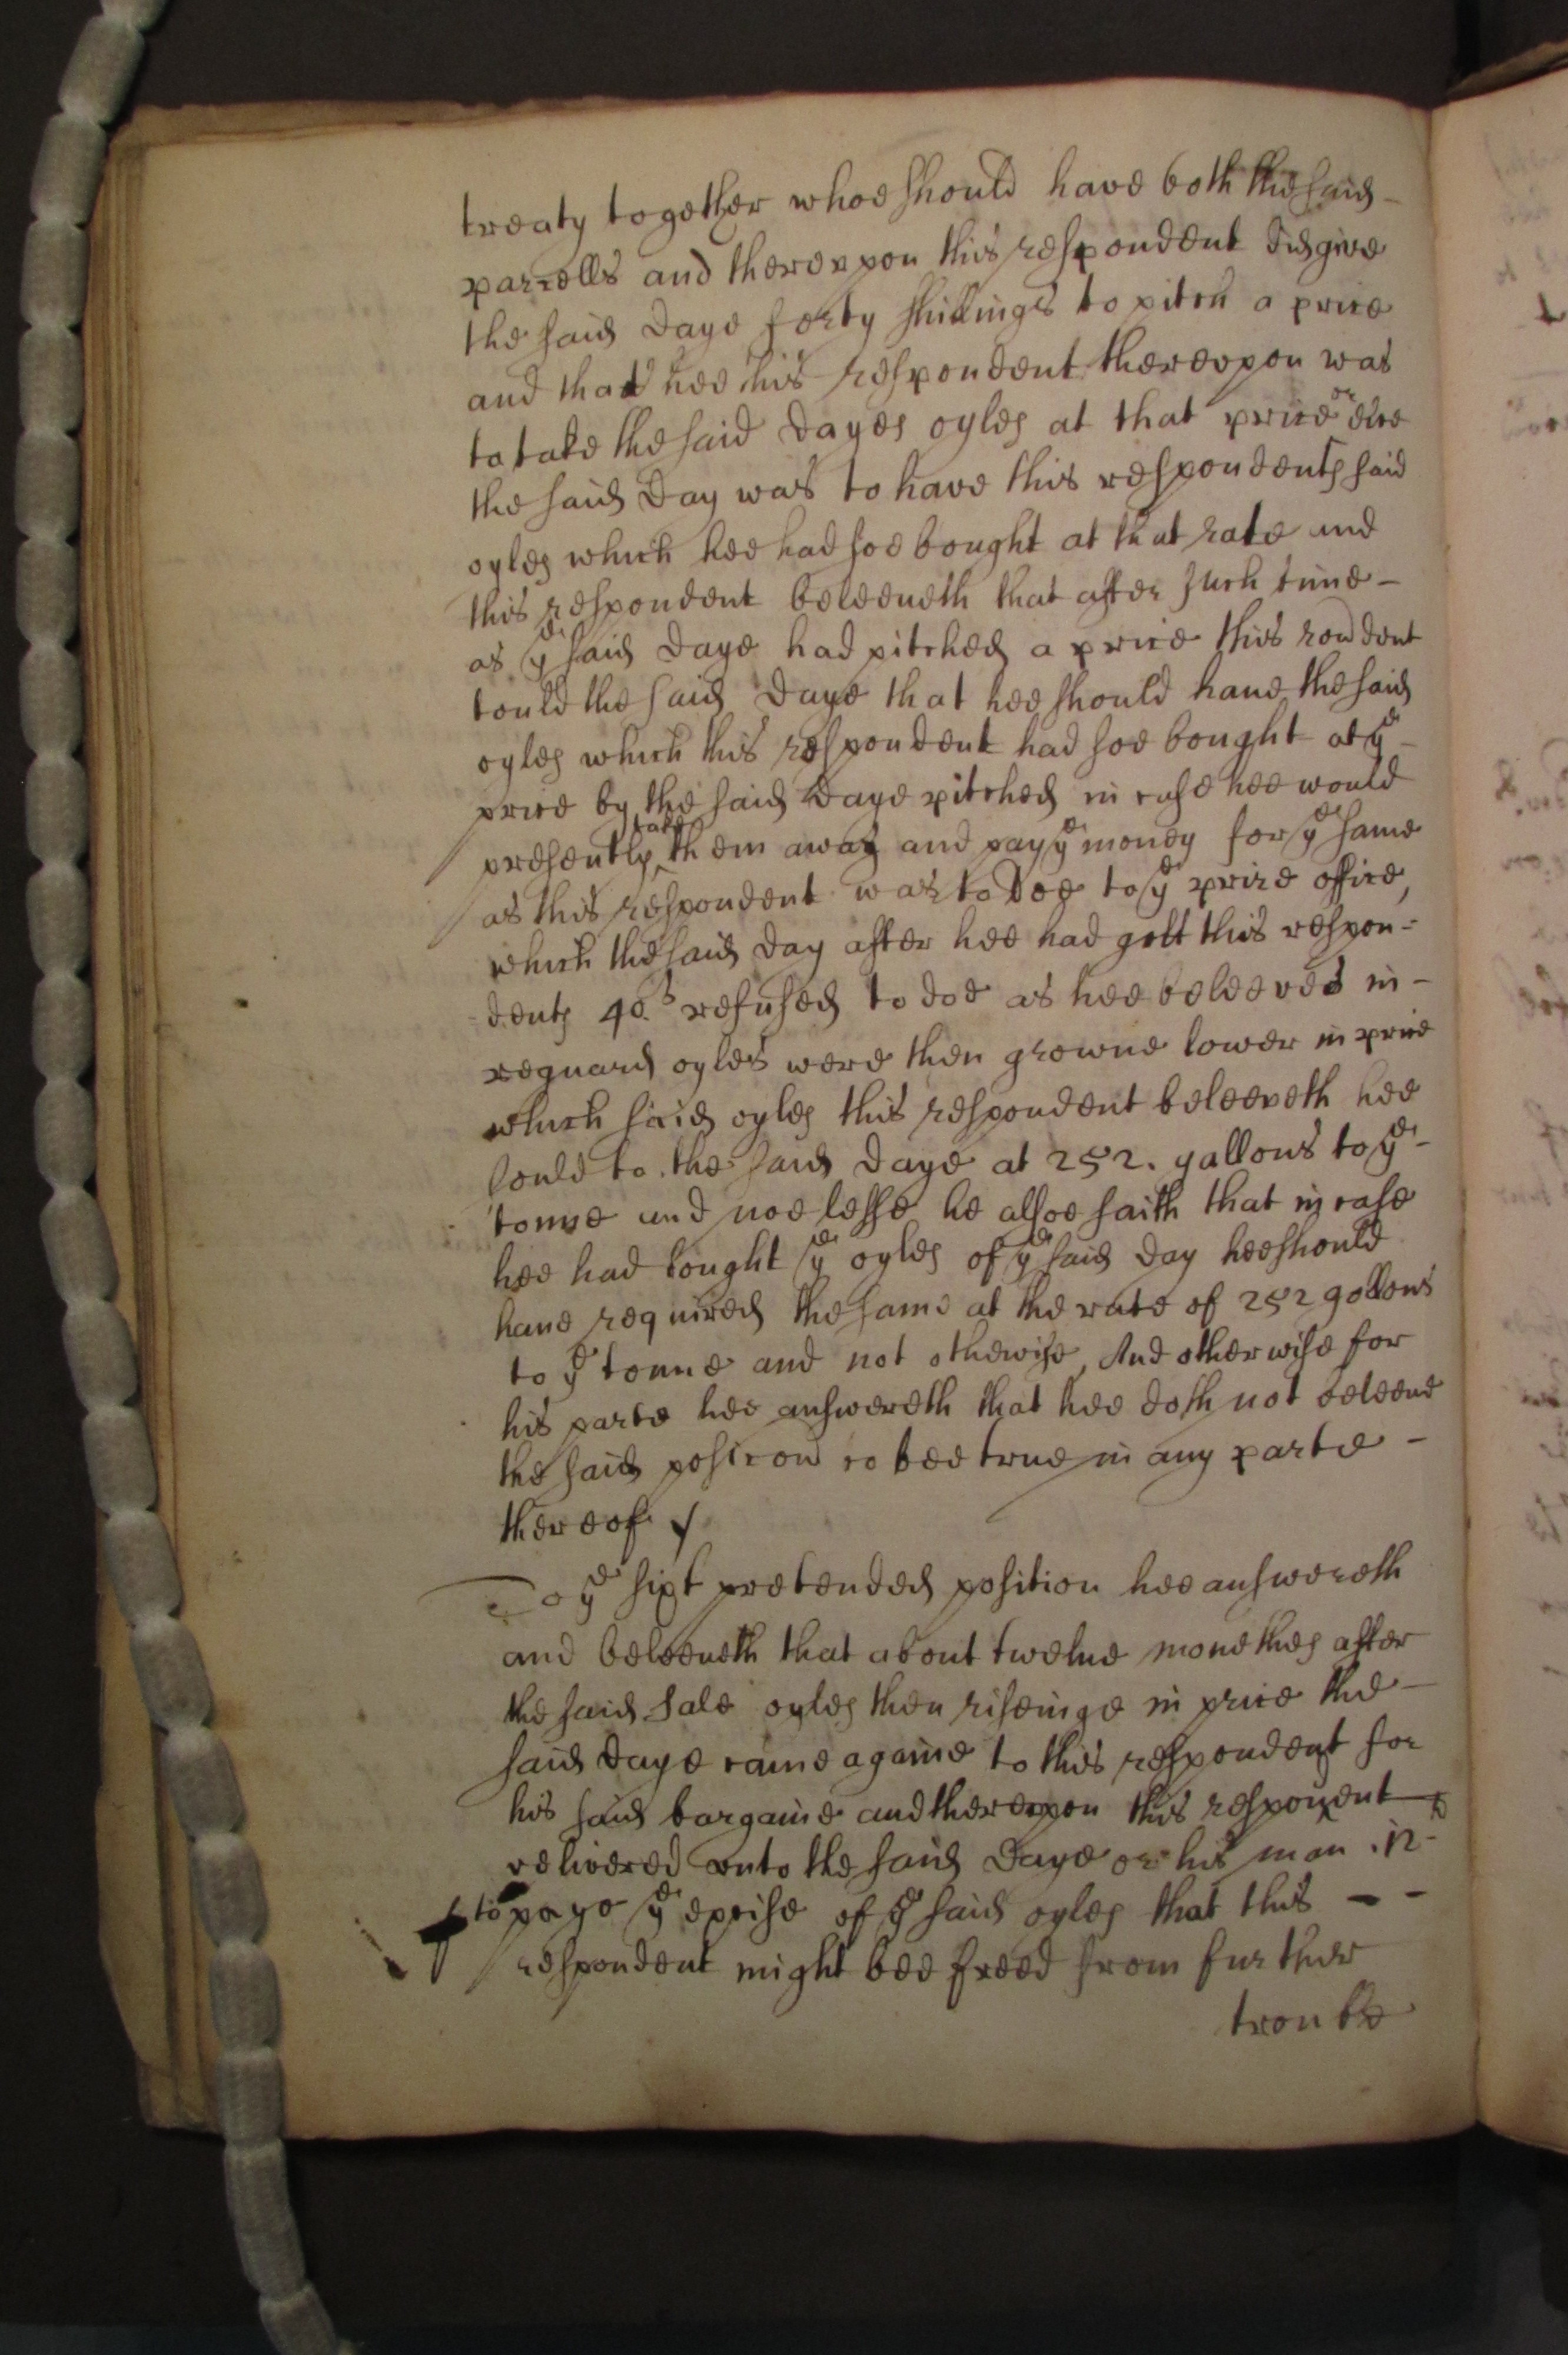 treaty together whoe should have both the said -
parcells and therevpon this respondent did give
the said Daye forty shillings to pitch a price
and that hee this respondent therevpon was
to take the said Dayes oyles at that price or else
the said Day was to have this respondents said
oyles which hee had soe bought at that rate and
this respondent beleeueth that after such time -
as ye said Daye had pitched a price this rondent
tould the said Daye that hee should haue the said
oyles which this respondent had soe bought at ye -
price by the said Daye pitched in case hee would
presently take them away and pay ye money for ye same
as this respondent was to doe to ye prize office,
which the said Day after hee had gott this respon=
dents 40.s refused to doe as hee beleeves in -
reguard oyles were then growne lower in price
which said oyles this respondent beleeveth hee
sould to the said Daye at 252. gallons to ye -
tonne and noe lesse he alsoe saith that in case
hee had bought ye oyles of ye said Day hee should
haue required the same at the rate of 252 gallons
to ye tonne and not othewise, And otherwise for
his parte hee answereth that hee doth not beleeue
the said posicon to bee true in any parte -
thereof /
To ye sixt pretended position hee answereth
and beleeueth that about twelue monethes after
the said sale oyles then riseinge in price the -
said Daye came againe to this respondent for
his said bargaine and therevpon this respondent
delivered vnto the said Daye or his man .12 -
to paye ye excise of ye said oyles that this - -
respondent might bee freed from further
trouble